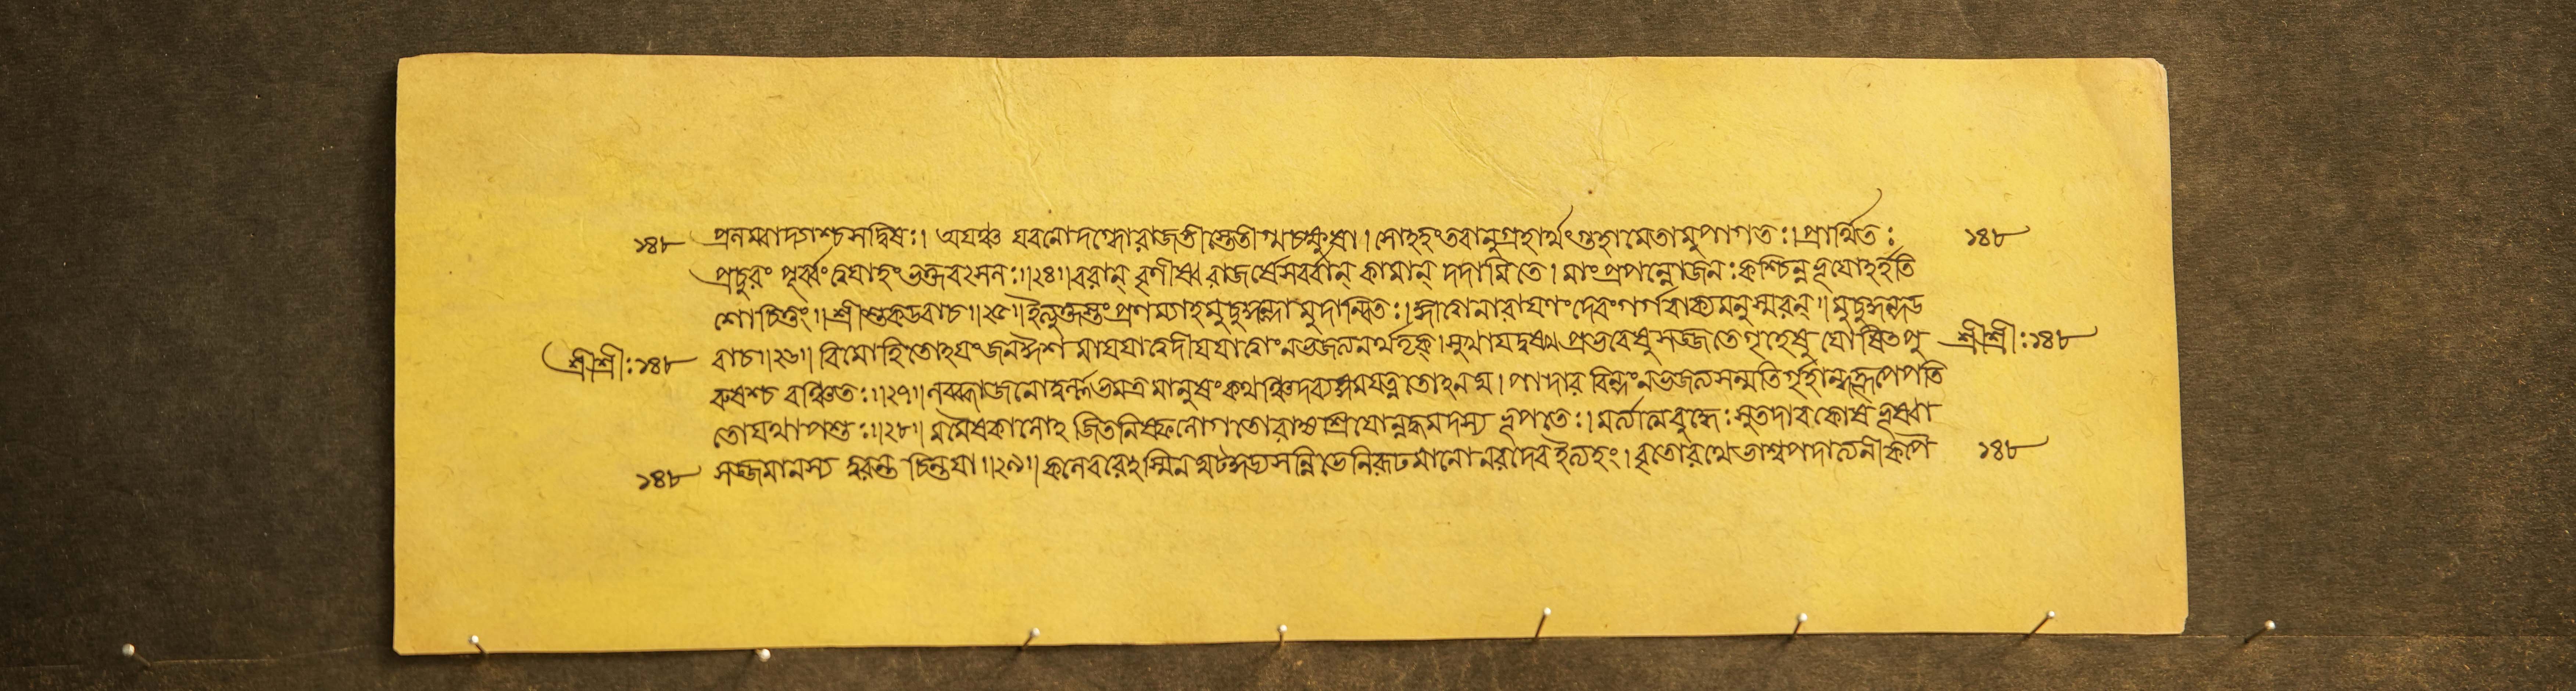 ১৪৮ প্রলম্বাদ্যাশ্চ সদ্বিষঃ। অয়ঞ্চ যবনো দগ্ধো রাজংস্তে তীগ্মচক্ষুষা। সোঽহং তবানুগ্রহার্থং গুহামেতামুপাগতঃ। প্রার্থিতঃ ১৪৮
প্রচুরং পূর্ব্বং ত্বয়াহং ভক্তবৎসলঃ॥২৪॥ বরান্ বৃণীষ্ব রাজর্ষে সর্বান্ কামান্ দদামি তে। মাং প্রপন্নো জনঃ কশ্চিন্ন ভূয়োঽর্হতি
শোচিতুং॥ শ্রীশুকউবাচ॥২৫॥ ইত্যুক্তস্তং প্রণম্যাহ মুচুকুন্দো মুদান্বিতঃ। জ্ঞাত্বা নারায়ণং দেবং গর্গবাক্যমনুস্মরন্॥ মুচুকুন্দউ
শ্রীশ্রীঃ১৪৮ বাচ॥২৬॥ বিমোহিতোঽয়ং জন ঈশ মায়য়া ত্বদীয়য়া ত্বাং ন ভজত্যনর্থদৃক্। সুখায় দুঃখপ্রভবেষু সজ্জতে গৃহেষু যোষিতপু শ্রীশ্রীঃ১৪৮
রুষশ্চ বঞ্চিতঃ॥২৭॥ লব্ধ্বা জনো দুর্ল্লভমত্র মানুষং কথঞ্চিদব্যঙ্গমযত্নতোঽনঘ। পাদারবিন্দং ন ভজত্যসন্মতির্গৃহান্ধকূপে পতি
তো যথা পশুঃ॥২৮॥ মমৈষ কালোঽজিত নিষ্ফলো গতো রাজ্যশ্রিয়োন্নদ্ধমদস্য ভূপতেঃ। মর্ত্যাত্মবুদ্ধেঃ সুতদারকোষভূষ্বা
১৪৮ সজ্জমানস্য দুরন্তচিন্তয়া॥২৯॥ কলেবরেঽস্মিন ঘটকুড্যসন্নিভে নিরূঢমানো নরদেব ইত্যহং। বৃতো রথেভাশ্বপদাত্যনীকপৈ ১৪৮